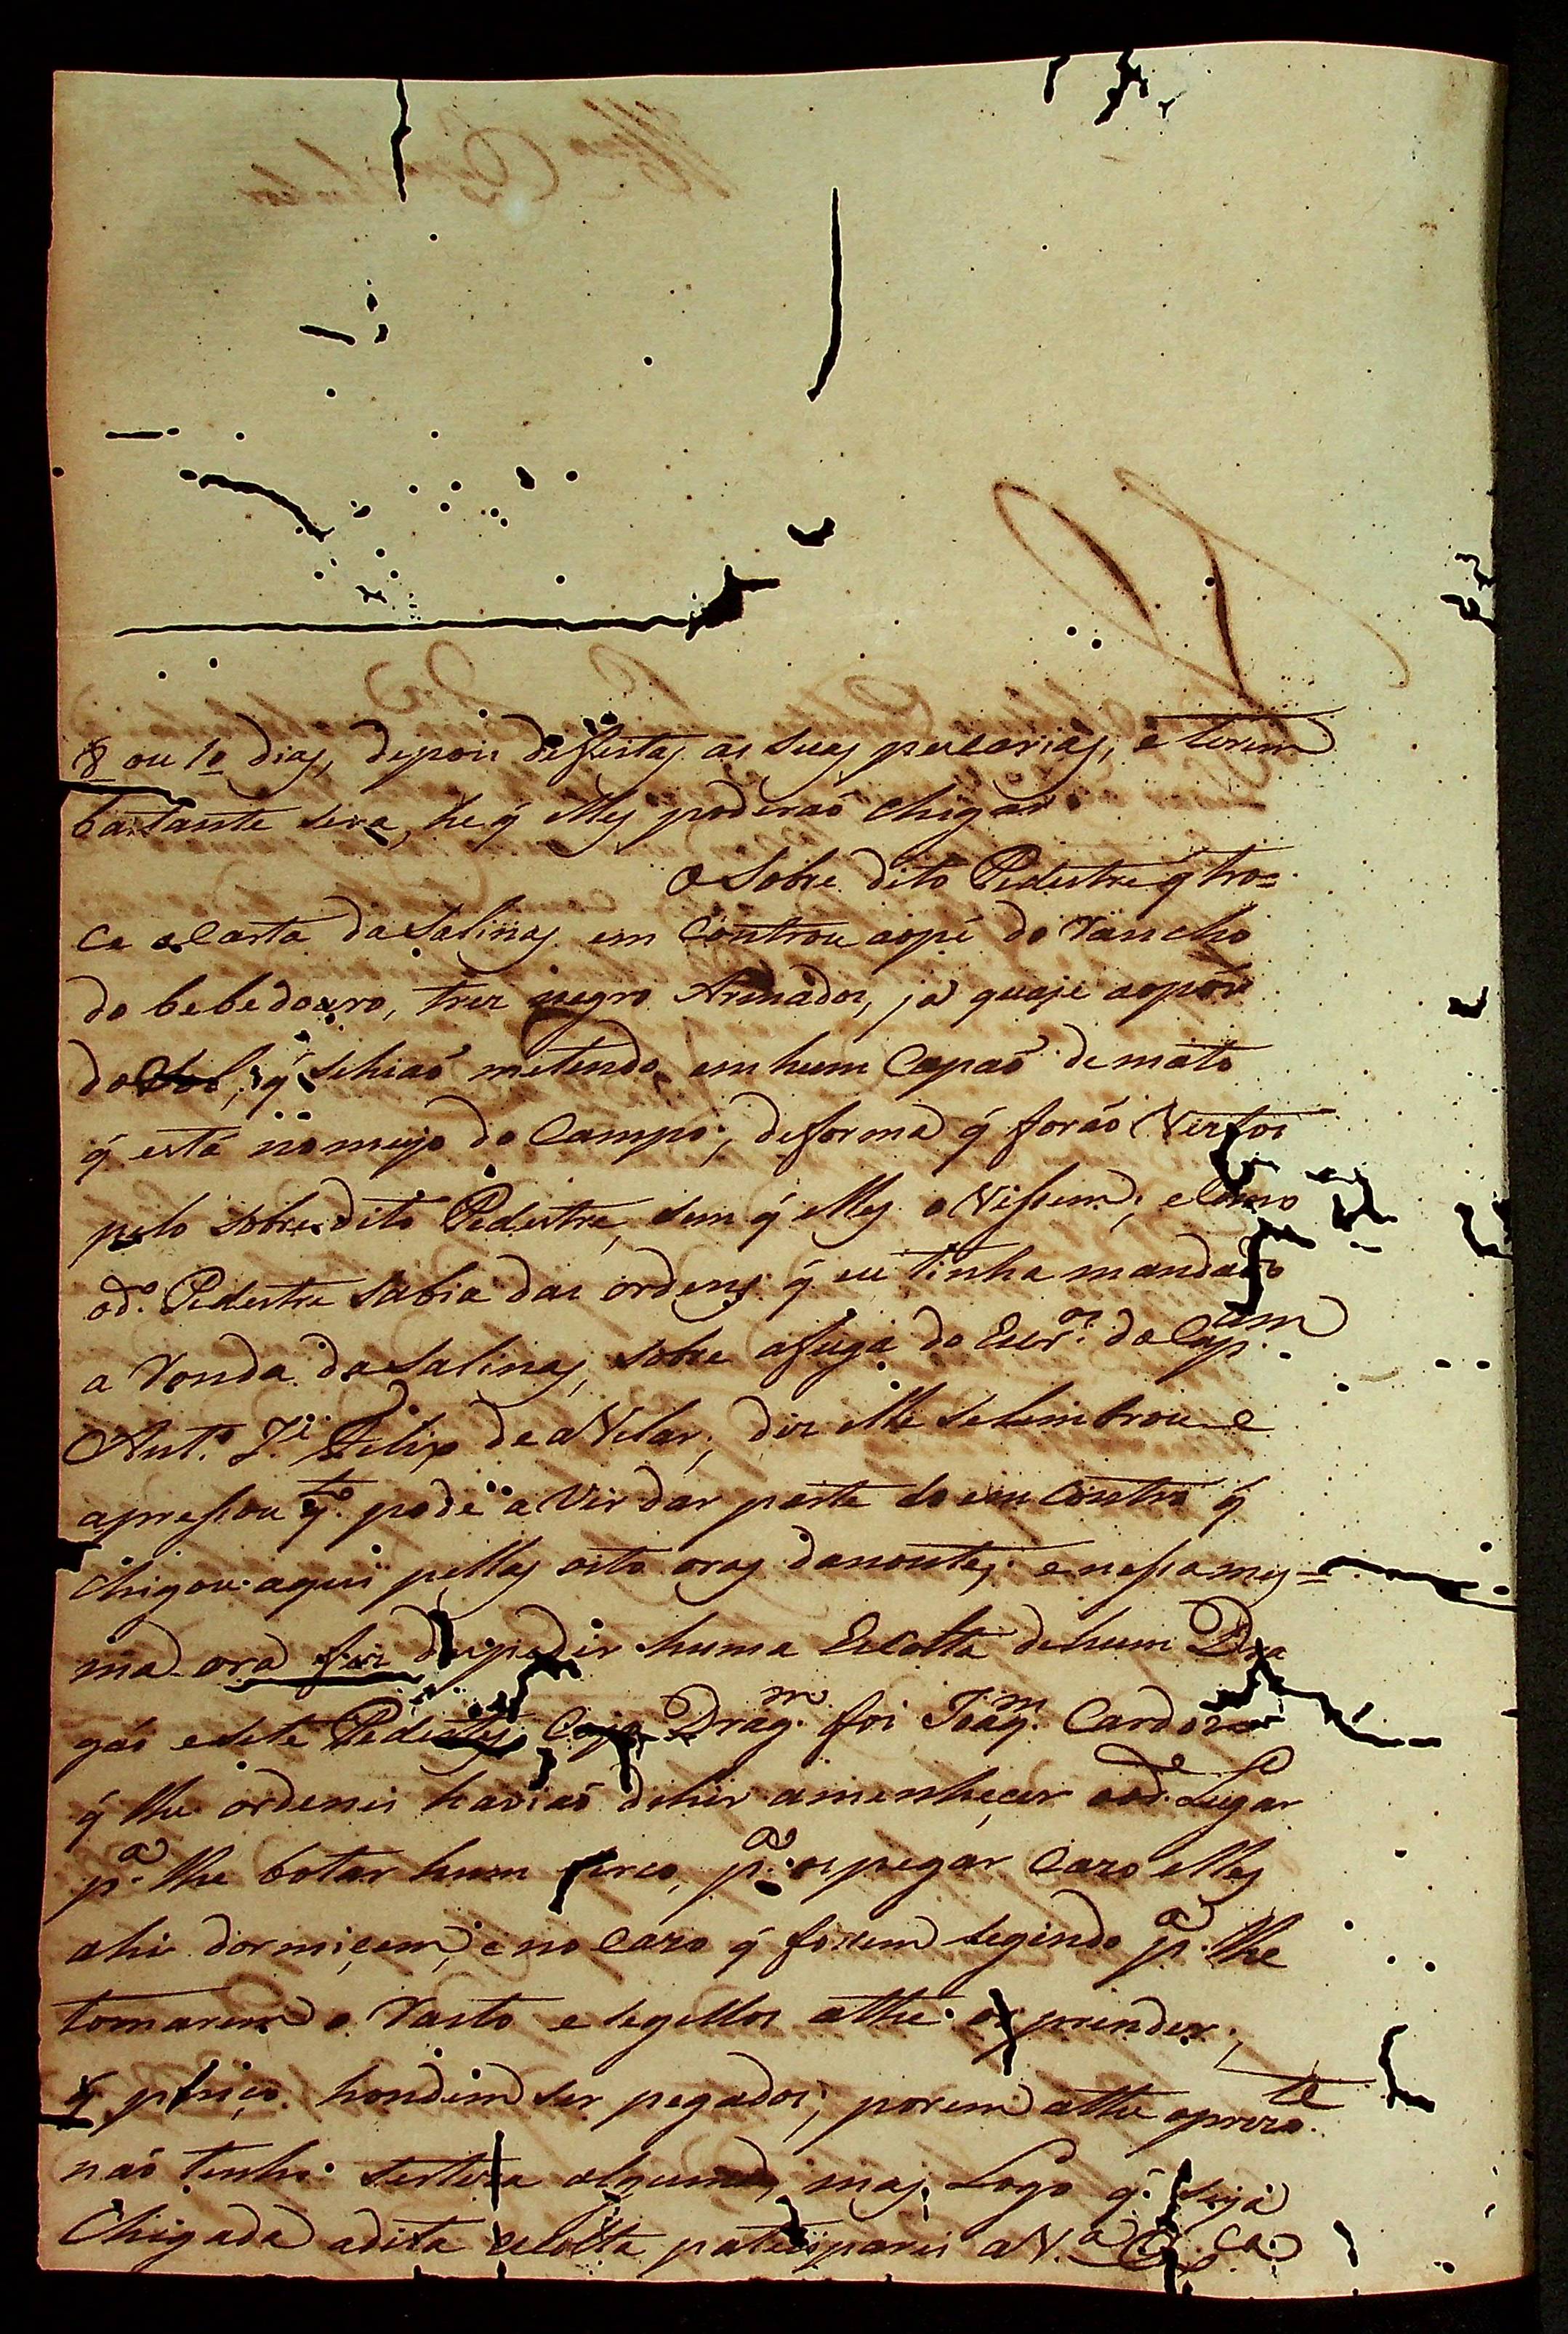 8 ou 10 dias, depois de feitas as suas pescarias, e terem
bastante sera, he q̃ elles poderaõ chigar.
O Sobre dito Pedestre q̃ tro=
ce a Carta da Salinas em Controu aopé do Rancho
do bebedouro, trez negro Armados, ja quaje aopôr
do Sol, q̃ sehiaõ metendo em hum Capaõ de mato
q̃ está nomeyo do Campo, deforma q̃ foraõ Vistos
pelo sobredito Pedestre, sem q̃ elles o Vissem; e Como
od.º Pedestre Sabia das ordens q̃ eu tinha mandado
a Ronda da Salinas, sobre afuga do Escr.os do Cap.am
Ant.º J.e Felix de aVelar, diz elle selembrou e
apressou q.to pode a Vir dar parte do em Contro q̃
chigou aqui pellas oito oras danoute; e nessa mes=
ma ora fiz despedir huma Escolta dehum Dra
gaõ e sete Pedestes, Cujo Drag.m foi Joaq.m Cardozo
q̃ lhe ordenei haviaõ dehir amenheçer aod.e Lugar
p.a lhe botar hum serco, p.a os pegar Cazo elles
ahi dormiçem, e no Cazo q̃ fosem segindo p.a lhe
tomarem o Rasto e segellos athe os prender,
q̃ hondem ser pegados; porem athe oprez.te
naõ tenho serteza alguma, mas Logo q̃ seja
Chigada adita escolta pateciparei aV.a Ex.ca